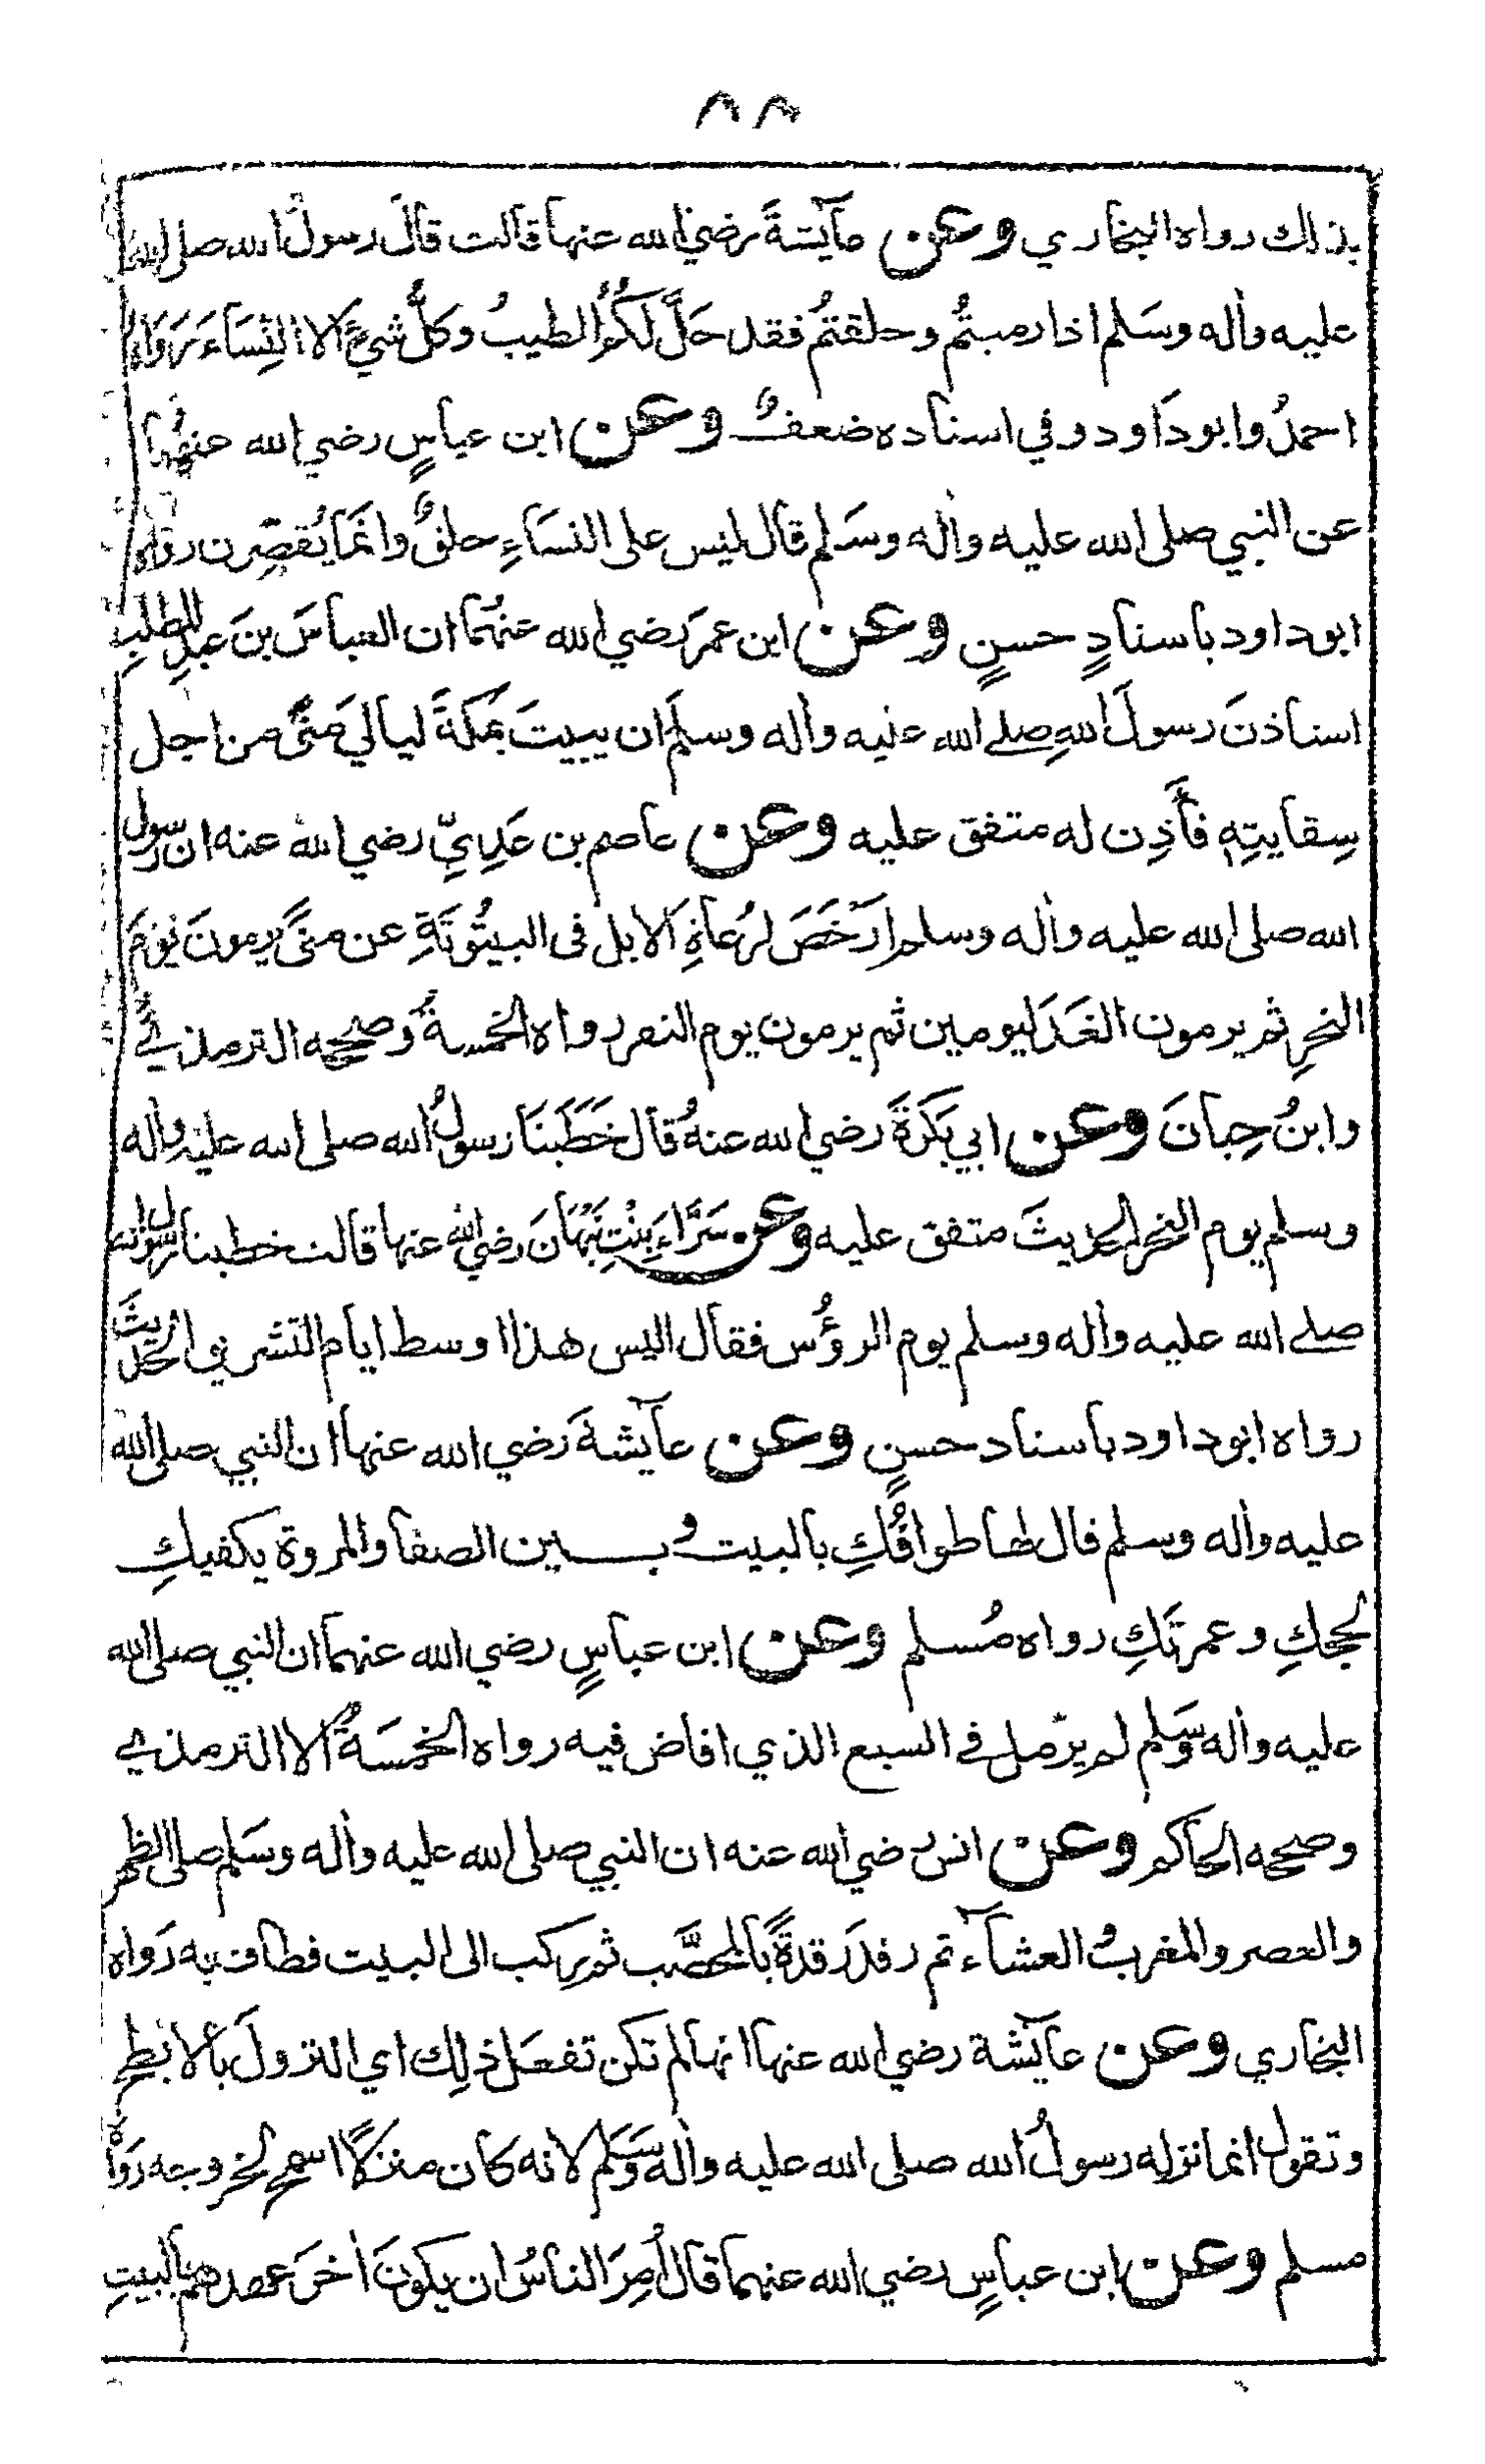 ٨٨
بذلك رواه البخاري وعن عآيشةَ رضي الله عنها قالت قالَ رسولُ الله صلى الله
عليه وأله وسَلم اذا رميتُم وحلقتُم فقد حَلَّ لكُمُ الطيبُ وكلُّ شيءٍ الا النِسَاءَ رَوَاهُ
احمدُ وابو داود وفي اسناده ضعفٌ وعن ابن عباسٍ رضي الله عنهُما
عن النبي صلى الله عليه وأله وسَلم قال ليس على النسَاءِ حلقٌ وانما يُقصِّرن رواه
ابو داود باسنادٍ حسنٍ وعن ابن عمرَ رضي الله عنهُما ان العباسَ بنَ عبدِ المطلبِ
استاذنَ رسولَ اللهِ صلے الله عليه وأله وسلم ان يبيتَ بمكةَ لياليَ منًى من اجل
سِقايتِهِ فأَذِن له متفق عليه وعن عاصم بن عَدِيٍّ رضي اللهُ عنه ان رسول
الله صلى الله عليه وأله وسلم ارَخَصَ لرُعاةِ الابل فى البيتُوتَةِ عن منىً يرمونَ يَومَ
النحرِ ثم يرمون الغَدَ ليومين ثم يرمون يوم النفر رواه الخمسةُ وصححه الترمذيُّ
وابنُ حِبانَ وعن ابي بَكرَةَ رضي الله عنهُ قال خَطَبَنَا رسولُ الله صلى الله عليه وأله
وسلم يوم النحر الحديثَ متفق عليه وعن سَرَّاءَ بِنْتِ نَبْهَانَ رضي الله عنها قالت خطبنا رسول الله
صلے الله عليه وأله وسلم يوم الرؤُس فقال اليس هذا اوسط ايام التشريق الحديثَ
رواه ابو داود باسناد حسنٍ وعن عآيشةَ رضي الله عنها ان النبي صلى الله
عليه وأله وسلم قال لها طوافُكِ بالبيت وبين الصفا والمروة يكفيكِ
لحجكِ وعمرتَكِ رواه مُسلم وعن ابن عباسٍ رضي الله عنهما ان النبي صلى الله
عليه وأله وسَلم لم يرمل في السبع الذي افاض فيه رواه الخمسَةُ الا الترمذي
وصححه الحاكم وعن انس رضي الله عنه ان النبي صلى الله عليه وأله وسَلم صلى الظهر
والعصر والمغربَ والعشآء ثم رقد رَقدةً بالمحصَّب ثم ركب الى البيت فطاف به رَواه
البخاري وعن عآيشة رضي الله عنها انها لم تكن تفعَل ذلِك اي النزولَ بالابطحِ
وتقول انما نزله رسولُ الله صلى الله عليه وأله وسَلم لانه كان منزلًا اسمح لخروجه رَوَاه
مسلم وعن ابن عباسٍ رضي الله عنهما قال اُمِرَ الناسُ ان يكونَ أخرَ عهدهم بالبيتِ